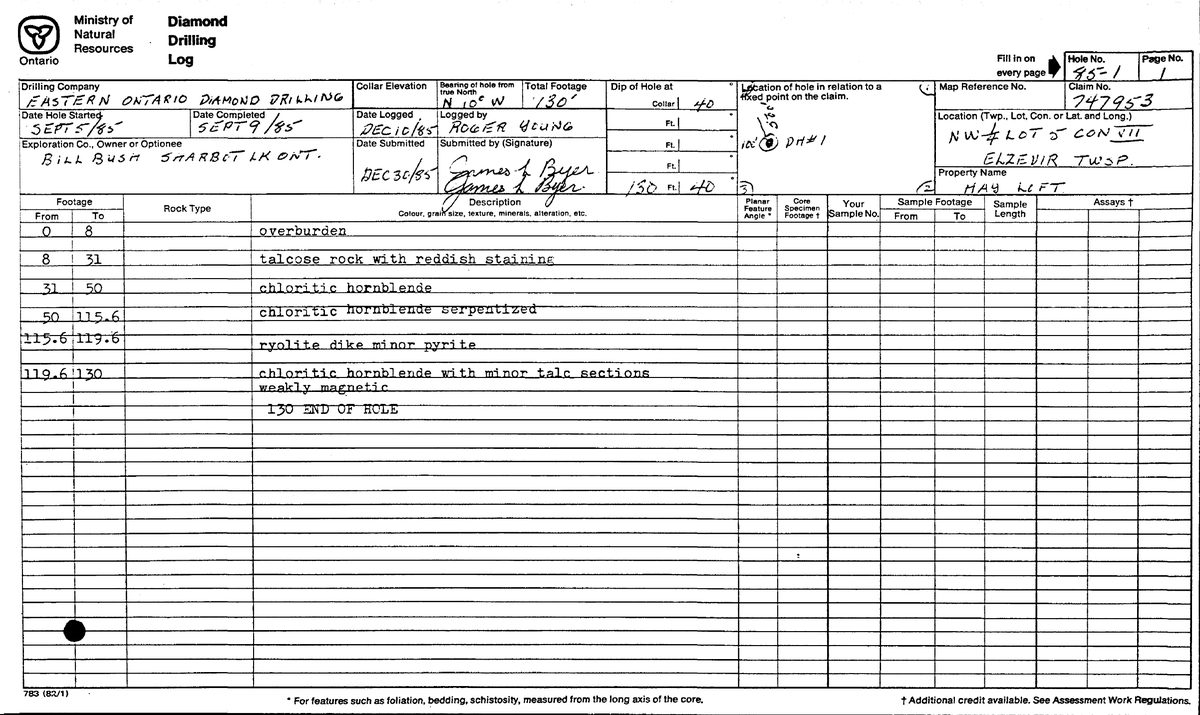 Ontario
Ministry of
Natural
Resources
Diamond
Drilling
Log
Fill in on
every page
Hole No.
85-1
Page No.
1
Drilling Company
EASTERN ONTARIO DIAMOND DRILLING
Collar Elevation
Bearing of hole from
true North
N 10° W
Total Footage
130'
Dip of Hole at
Collar 40 °
Ft. °
Ft. °
Ft. °
130 Ft. 40 °
Location of hole in relation to a
fixed point on the claim.
DH#1
Map Reference No.
Claim No.
747953
Date Hole Started
SEPT 5/85
Date Completed
SEPT 9/85
Date Logged
DEC 10/85
Logged by
ROGER YOUNG
Location (Twp., Lot, Con. or Lat. and Long.)
NW 1/4 LOT 5 CON VII
ELZEVIR TWSP.
Exploration Co., Owner or Optionee
BILL BUSH SHARBOT LK ONT.
Date Submitted
DEC 30/85
Submitted by (Signature)
James L Byer
James L Byer.
Property Name
HAY LOFT
Footage
From To
Rock Type
Description
Colour, grain size, texture, minerals, alteration, etc.
Planar
Feature
Angle *
Core
Specimen
Footage †
Your
Sample No.
Sample Footage
From To
Sample
Length
Assays †
0 8 overburden
8 31 talcose rock with reddish staining
31 50 chloritic hornblende
50 115.6 chloritic hornblende serpentized
115.6 119.6 ryolite dike minor pyrite
119.6 130 chloritic hornblende with minor talc sections
weakly magnetic
130 END OF HOLE
783 (82/1)
* For features such as foliation, bedding, schistosity, measured from the long axis of the core.
† Additional credit available. See Assessment Work Regulations.